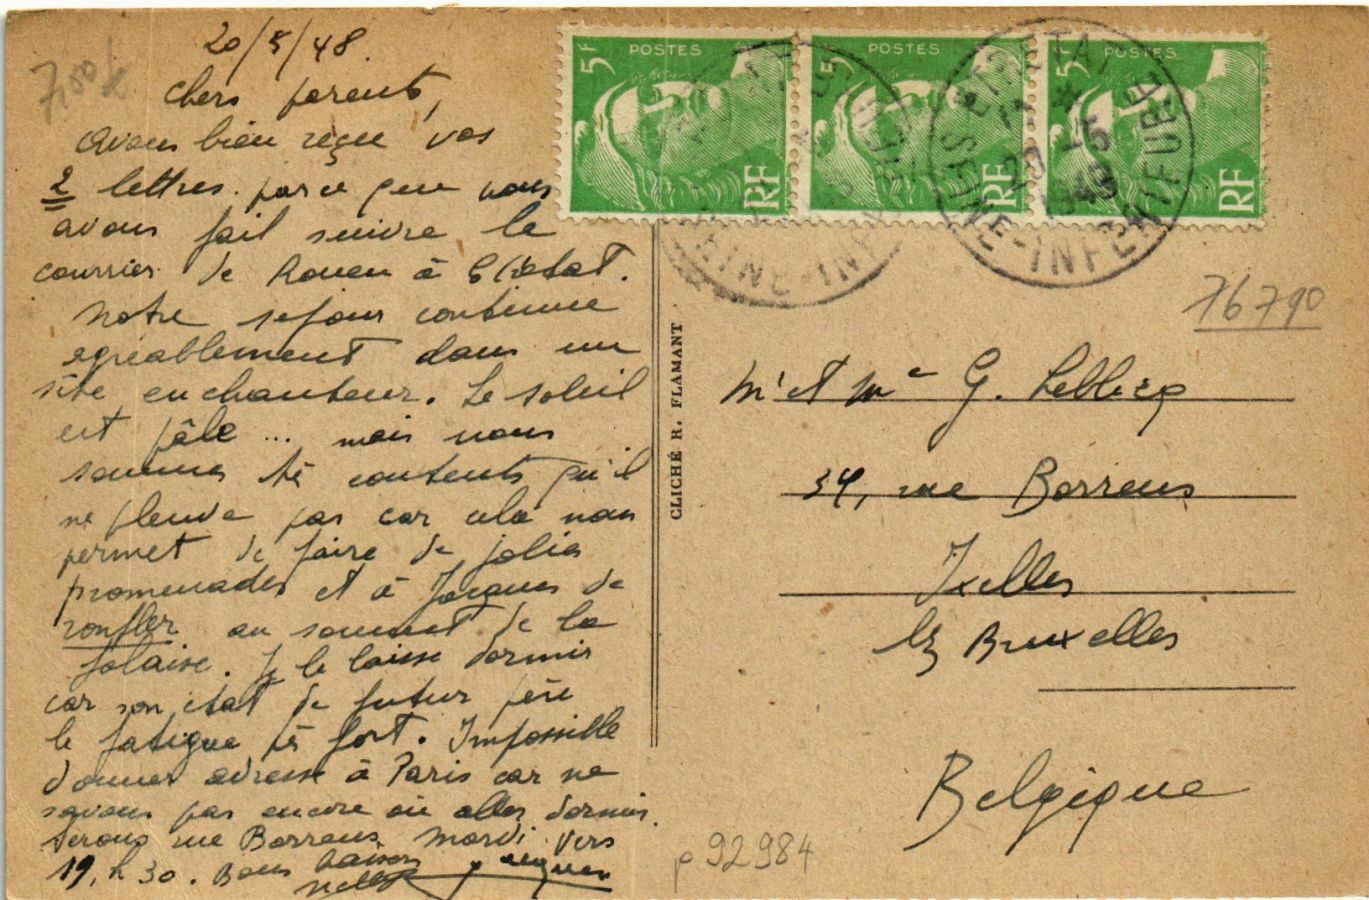 20/5/48.
7,50k
Chers parents,
Avons bien reçu vos
2 lettres parce que nous
avons fait suivre le
courrier de Rouen à Etretat.
Notre séjour continue
agréablement dans un
site enchanteur. Le soleil
est pâle ... mais nous
sommes tès contents qu'il
ne pleuve pas car cela nous
permet de faire de jolies
promenades et à Jacques de
ronfler au sommet de la
falaise. Je le laisse dormir
car son état de futur père
le fatigue tès fort. Impossible
donner adresse à Paris car ne
savons pas encore où aller dormir.
Serons rue Borrens Mardi vers
19, h 30. Bons baisers
Jacques
POSTES
5F
RF
POSTES
5F
RF
POSTES
5F
RF
LES ETRETAT
20 5
1948
SEINE-INFERIEURE
CLICHÉ R. FLAMANT
76790
Mr et Me G. Leblicq
34, rue Borrens
Ixelles
lez Bruxelles
Belgique
p 92984